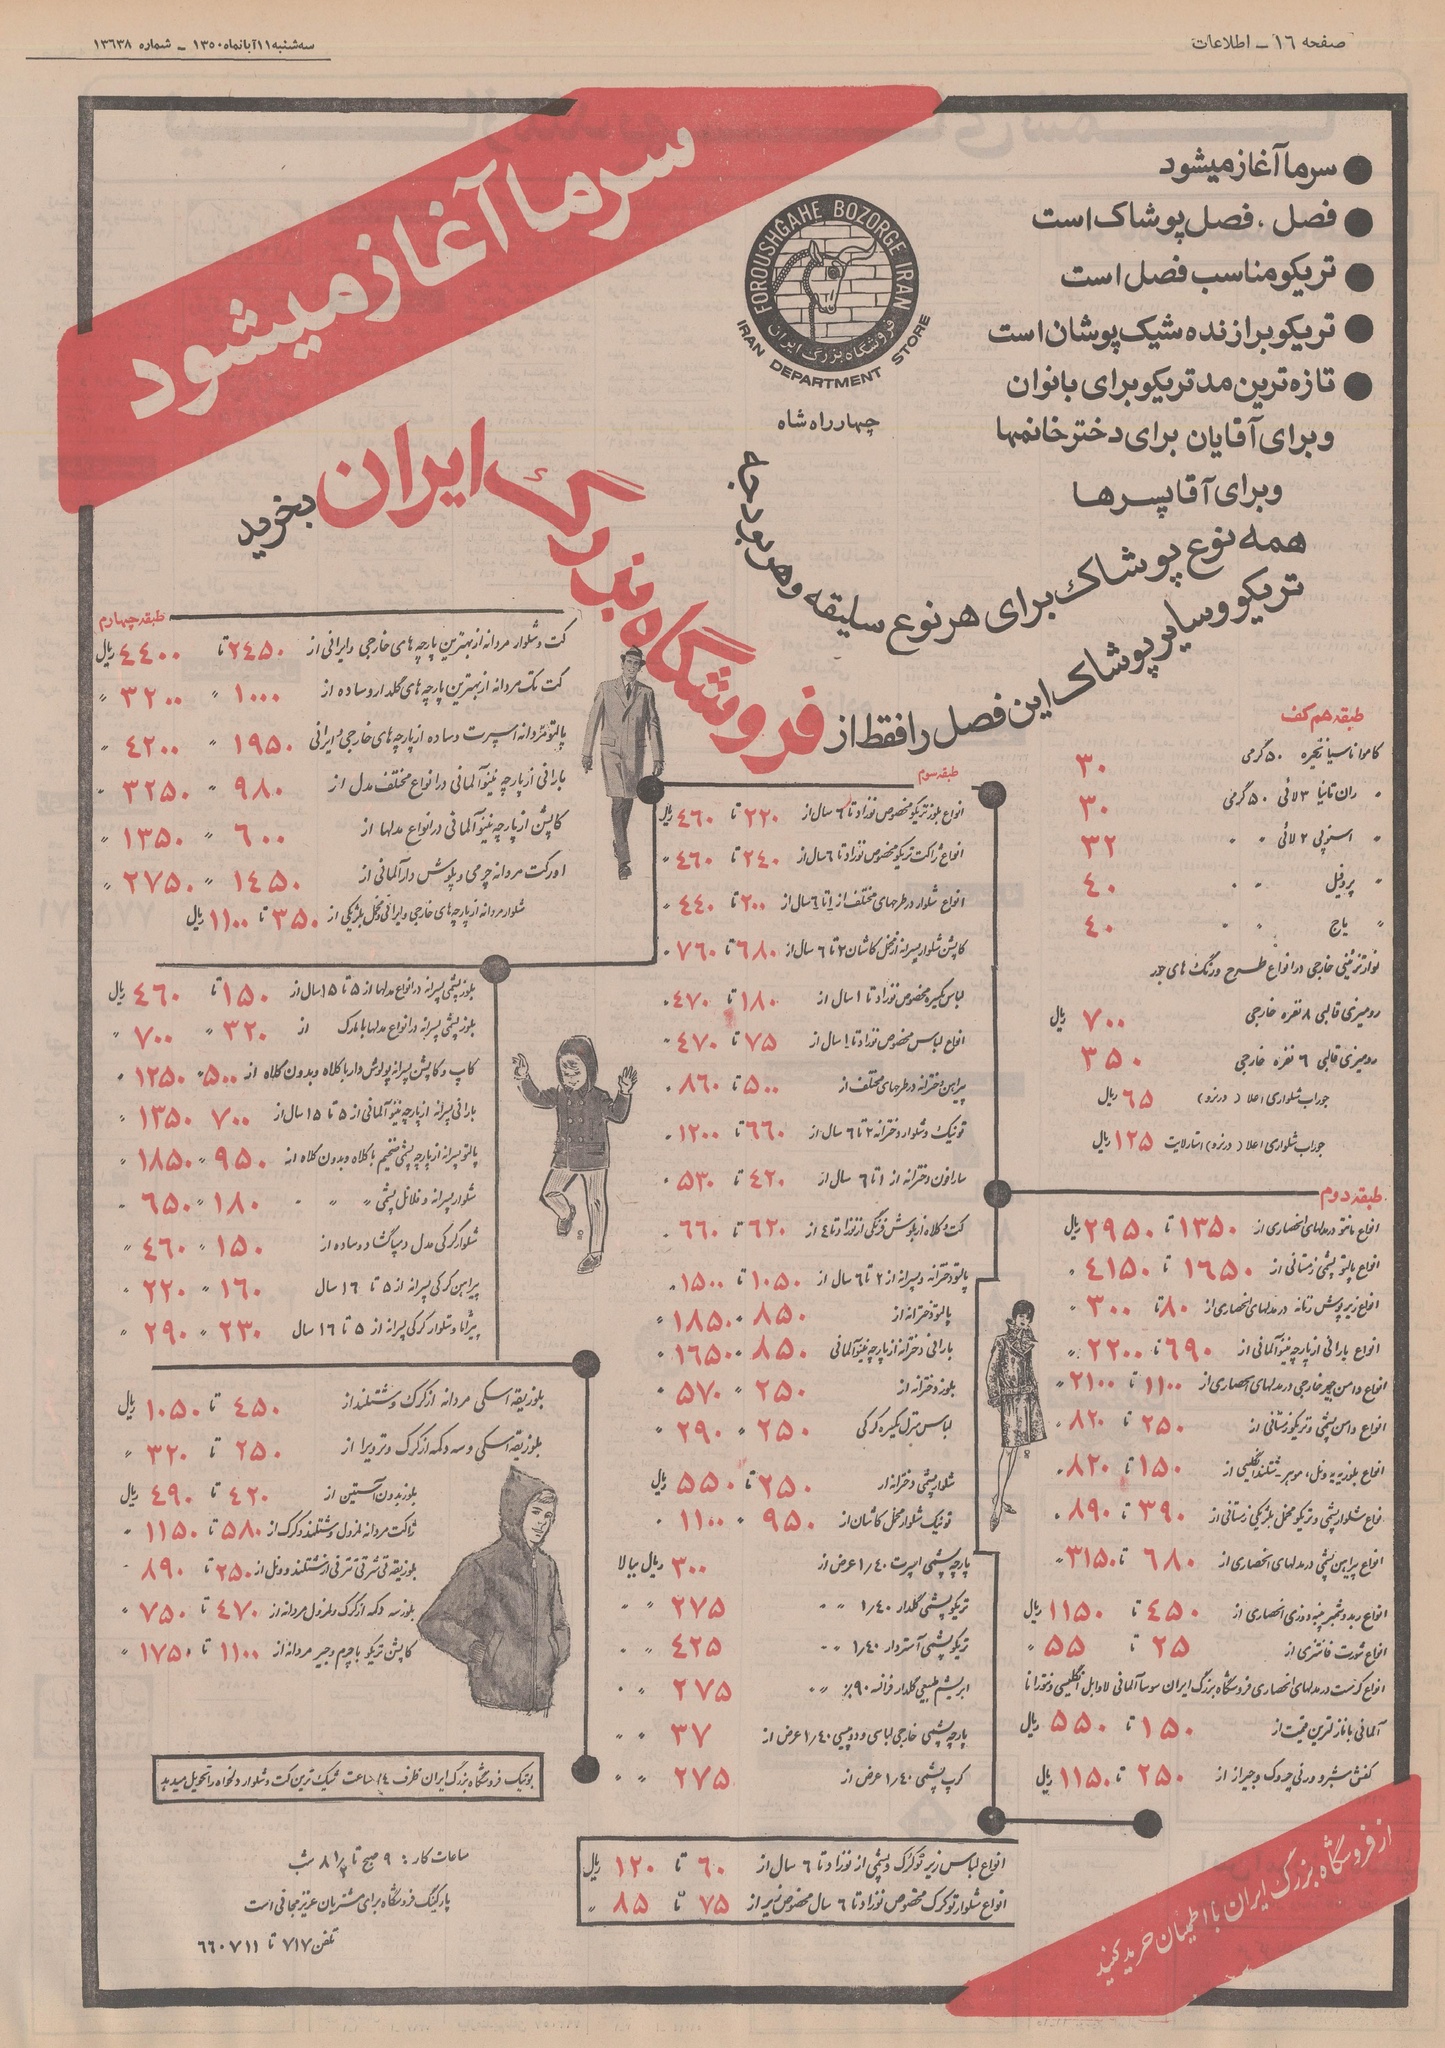 صفحه ۱۶ ـ اطلاعات
سه‌شنبه ۱۱ آبانماه ۱۳۵۰ ـ شماره ۱۳۶۳۸
سرما آغاز میشود
سرما آغاز میشود
فصل ، فصل پوشاک است
تریکو مناسب فصل است
تریکو برازنده شیک پوشان است
تازه‌ترین مد تریکو برای بانوان
و برای آقایان برای دختر خانمها
و برای آقا پسرها
همه نوع پوشاک برای هر نوع سلیقه و هر بودجه
تریکو و سایر پوشاک این فصل را فقط از
فروشگاه بزرگ ایران بخرید
FOROUSHGAHE BOZORGE IRAN
فروشگاه بزرگ ایران
IRAN DEPARTMENT STORE
چهارراه شاه
طبقه هم کف
کاموا ناسیا زنجیره ۵۰ گرمی ۳۰
" ران تانیا ۳ لائی ۵۰ گرمی ۳۰
" اسنوپی ۲ لائی " " ۳۲
" پروفیل " " ۴۰
" یاج " " ۴۰
نوار تزئینی خارجی در انواع طرح و رنگ های جور
رومیزی قالبی ۸ نفره خارجی ۷۰۰ ریال
رومیزی قالبی ۶ نفره خارجی ۳۵۰
جوراب شلواری اعلا ( درنزو ) ۶۵ ریال
جوراب شلواری اعلا ( درنزو ) استارلایت ۱۲۵ ریال
طبقه دوم
انواع مانتو در مدلهای انحصاری از ۱۳۵۰ تا ۲۹۵۰ ریال
انواع پالتو پشمی زمستانی از ۱۶۵۰ تا ۴۱۵۰ "
انواع زیرپوش زنانه در مدلهای انحصاری از ۸۰ تا ۳۰۰ "
انواع بارانی از پارچه نینو آلمانی از ۶۹۰ تا ۲۲۰۰ "
انواع دامن جیر خارجی در مدلهای انحصاری از ۱۱۰۰ تا ۲۱۰۰ "
انواع دامن پشمی و تریکو زمستانی از ۲۵۰ تا ۸۲۰ "
انواع بلوز یه یه ونل، موهر ـ شتلند انگلیسی از ۱۵۰ تا ۸۲۰ "
انواع شلوار پشمی و تریکو مخمل بلژیکی زمستانی از ۳۹۰ تا ۸۹۰ "
انواع پیراهن پشمی در مدلهای انحصاری از ۶۸۰ تا ۳۱۵۰ "
انواع ربدوشامبر پنبه دوزی انحصاری از ۴۵۰ تا ۱۱۵۰ ریال
انواع شورت فانتزی از ۲۵ تا ۵۵ "
انواع کرست در مدلهای انحصاری فروشگاه بزرگ ایران سوسا آلمانی لاوابل انگلیسی و نتورانا
آلمانی با نازلترین قیمت از ۱۵۰ تا ۵۵۰ ریال
کفش شبرو ورنی چروک و جیر از از ۲۵۰ تا ۱۱۵۰ ریال
طبقه سوم
انواع بلوز تریکو مخصوص نوزاد تا ۶ سال از ۲۲۰ تا ۴۶۰ ریال
انواع ژاکت تریکو مخصوص نوزاد تا ۶ سال از ۲۴۰ تا ۴۶۰ "
انواع شلوار در طرحهای مختلف از ۱ تا ۶ سال از ۲۰۰ تا ۴۴۰ "
کاپشن شلوار پسرانه از مخمل کاشان ۲ تا ۶ سال از ۶۸۰ تا ۷۶۰ "
لباس یکسره مخصوص نوزاد تا ۱ سال از ۱۸۰ تا ۴۷۰ "
انواع لباس مخصوص نوزاد تا ۱ سال از ۷۵ تا ۴۷۰ "
پیراهن دخترانه در طرحهای مختلف از ۵۰۰ تا ۸۶۰ "
تونیک و شلوار دخترانه ۲ تا ۶ سال از ۶۶۰ تا ۱۲۰۰ "
سارافون دخترانه از ۱ تا ۶ سال از ۴۲۰ تا ۵۳۰ "
کت و کلاه از پلوش فرنگی از نوزاد تا ۴ از ۶۲۰ تا ۶۶۰ "
پالتو دخترانه و پسرانه از ۲ تا ۶ سال از ۱۰۵۰ تا ۱۵۰۰ "
پالتو دخترانه از ۸۵۰ " ۱۸۵۰ "
بارانی دخترانه از پارچه نینو آلمانی ۸۵۰ " ۱۶۵۰ "
بلوز دخترانه از ۲۵۰ " ۵۷۰ "
لباس منزل یکسره کرکی ۲۵۰ " ۲۹۰ "
شلوار پشمی دخترانه از ۲۵۰ تا ۵۵۰ ریال
تونیک شلوار مخمل کاشان از ۹۵۰ " ۱۱۰۰ "
پارچه پشمی اسپرت ۱/۴۰ عرض از ۳۰۰ ریال ببالا
تریکو پشمی گلدار ۱/۴۰ " " ۲۷۵ " "
تریکو پشمی آستردار ۱/۴۰ " " ۴۲۵ " "
ابریشم طبیعی گلدار فرانسه ۹۰٪ " " ۲۷۵ " "
پارچه پشمی خارجی لباسی و دوپیسی ۱/۴۰ عرض از ۳۷ " "
کرپ پشمی ۱/۴۰ عرض از ۲۷۵ " "
انواع لباس زیر توکرک و پشمی از نوزاد تا ۶ سال از ۶۰ تا ۱۲۰ ریال
انواع شلوار توکرک مخصوص نوزاد تا ۶ سال مخصوص زیر از ۷۵ تا ۸۵ "
طبقه چهارم
کت و شلوار مردانه از بهترین پارچه های خارجی و ایرانی از ۲۴۵۰ تا ۴۴۰۰ ریال
کت تک مردانه از بهترین پارچه های گلدار و ساده از ۱۰۰۰ " ۳۲۰۰ "
پالتو مردانه اسپرت و ساده از پارچه های خارجی و ایرانی ۱۹۵۰ " ۴۲۰۰ "
بارانی از پارچه نینو آلمانی در انواع مختلف مدل از ۹۸۰ " ۳۲۵۰ "
کاپشن از پارچه نینو آلمانی در انواع مدلها از ۶۰۰ " ۱۳۵۰ "
اورکت مردانه چرمی و پلوش دار آلمانی از ۱۴۵۰ " ۲۷۵۰ "
شلوار مردانه از پارچه های خارجی و ایرانی و مخمل بلژیکی از ۳۵۰ تا ۱۱۰۰ ریال
بلوز پشمی پسرانه در انواع مدلها از ۵ تا ۱۵ سال از ۱۵۰ تا ۴۶۰ ریال
بلوز پشمی پسرانه در انواع مدلها با مارک از ۳۲۰ " ۷۰۰ "
کاپ و کاپشن پسرانه پولوش دار با کلاه و بدون کلاه از ۵۰۰ " ۱۲۵۰ "
بارانی پسرانه از پارچه نینو آلمانی از ۵ تا ۱۵ سال از ۷۰۰ " ۱۳۵۰ "
پالتو پسرانه از پارچه پشمی ضخیم با کلاه و بدون کلاه از ۹۵۰ " ۱۸۵۰ "
شلوار پسرانه و فلانل پشمی " " ۱۸۰ " ۶۵۰ "
شلوار کرکی مدل دمپا گشاد و ساده از ۱۵۰ " ۴۶۰ "
پیراهن کرکی پسرانه از ۵ تا ۱۶ سال ۱۶۰ " ۲۲۰ "
پیژاما و شلوار کرکی پسرانه از ۵ تا ۱۶ سال ۲۳۰ " ۲۹۰ "
بلوز یقه اسکی مردانه از کرک و شتلند از ۴۵۰ تا ۱۰۵۰ ریال
بلوز یقه اسکی و سه دکمه از کرک و ترویرا از ۲۵۰ تا ۳۲۰ "
بلوز بدون آستین از ۴۲۰ تا ۴۹۰ ریال
ژاکت مردانه لمزول و شتلند و کرک از ۵۸۰ تا ۱۱۵۰ "
بلوز یقه تی شرتی نترفی از شتلند و ونل از ۲۵۰ تا ۸۹۰ "
بلوز سه دکمه از کرک و لمزول مردانه از ۴۷۰ تا ۷۵۰ "
کاپشن تریکو با چرم و جیر مردانه از ۱۱۰۰ تا ۱۷۵۰ "
بوتیک فروشگاه بزرگ ایران ظرف ۲۴ ساعت شیک ترین کت و شلوار دلخواه را تحویل میدهد
ساعات کار : ۹ صبح تا ۸½ شب
پارکینگ فروشگاه برای مشتریان عزیز مجانی است
تلفن ۷۱۷ تا ۶۶۰۷۱۱
از فروشگاه بزرگ ایران با اطمینان خرید کنید